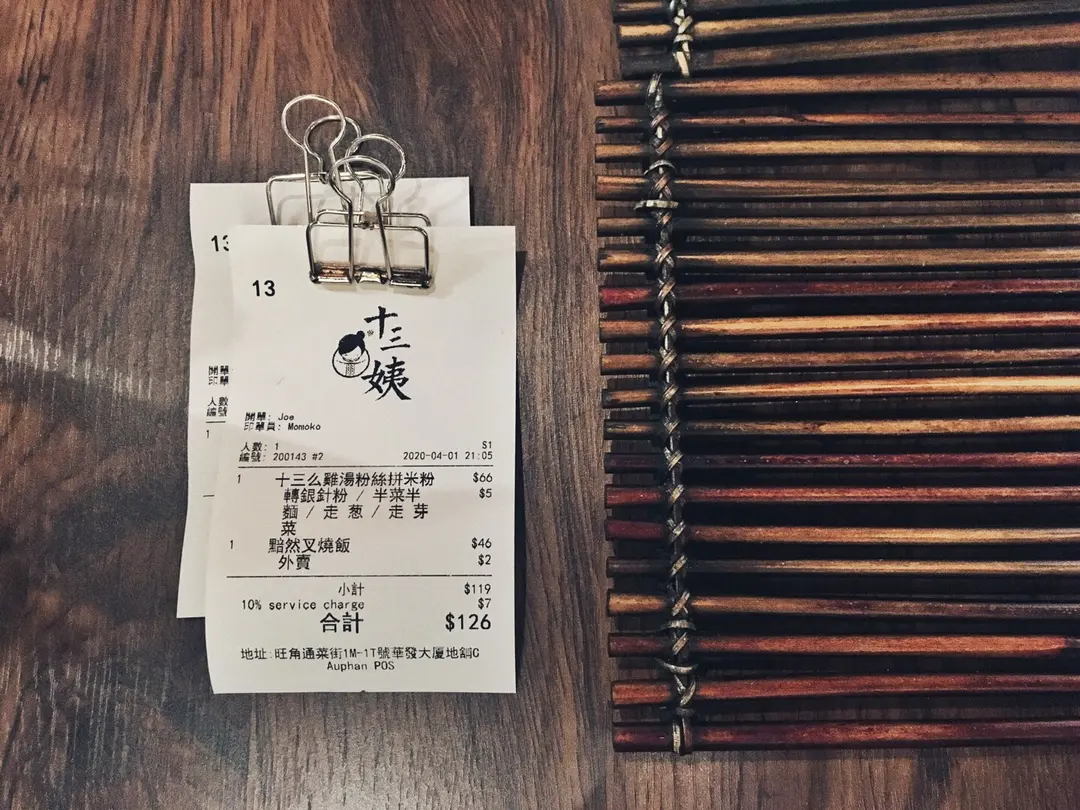 13
開單
印單
人數
編號
1
13
十三姨
開單: Joe
印單員: Momoko
人數: 1 S1
編號: 200143 #2 2020-04-01 21:05
1 十三么雞湯粉絲拼米粉 $66
轉銀針粉 / 半菜半 $5
麵 / 走葱 / 走芽
菜
1 黯然叉燒飯 $46
外賣 $2
小計 $119
10% service charge $7
合計 $126
地址:旺角通菜街1M-1T號華發大厦地舖C
Auphan POS